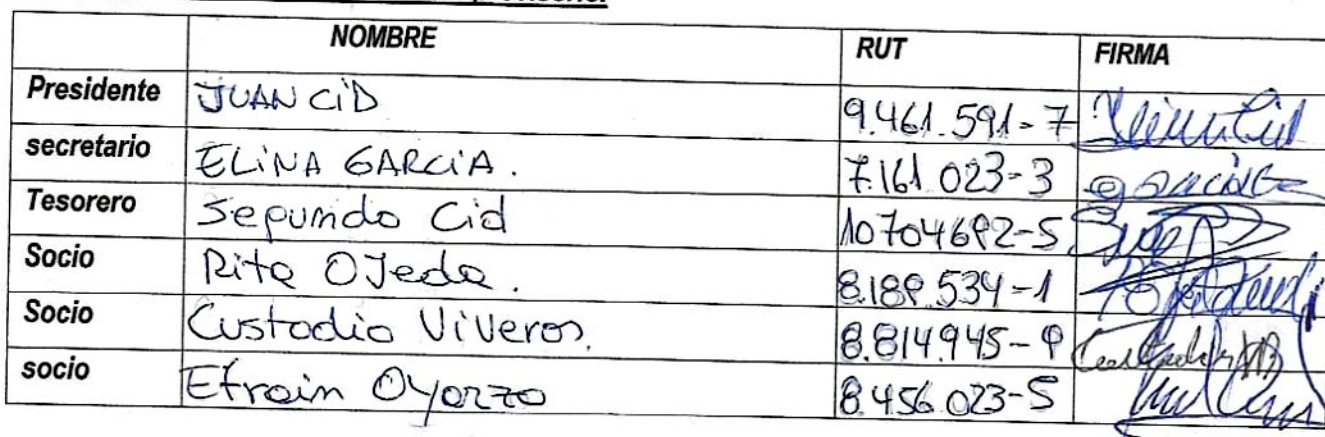 NOMBRE RUT FIRMA
Presidente JUAN CID 9.461.591-7
secretario ELINA GARCIA. 7.161.023-3
Tesorero Segundo Cid 10704692-5
Socio Rita OJeda. 8.189.534-1
Socio Custodio Viveros. 8.814.945-9
socio Efrain Oyarzo 8.456.023-5